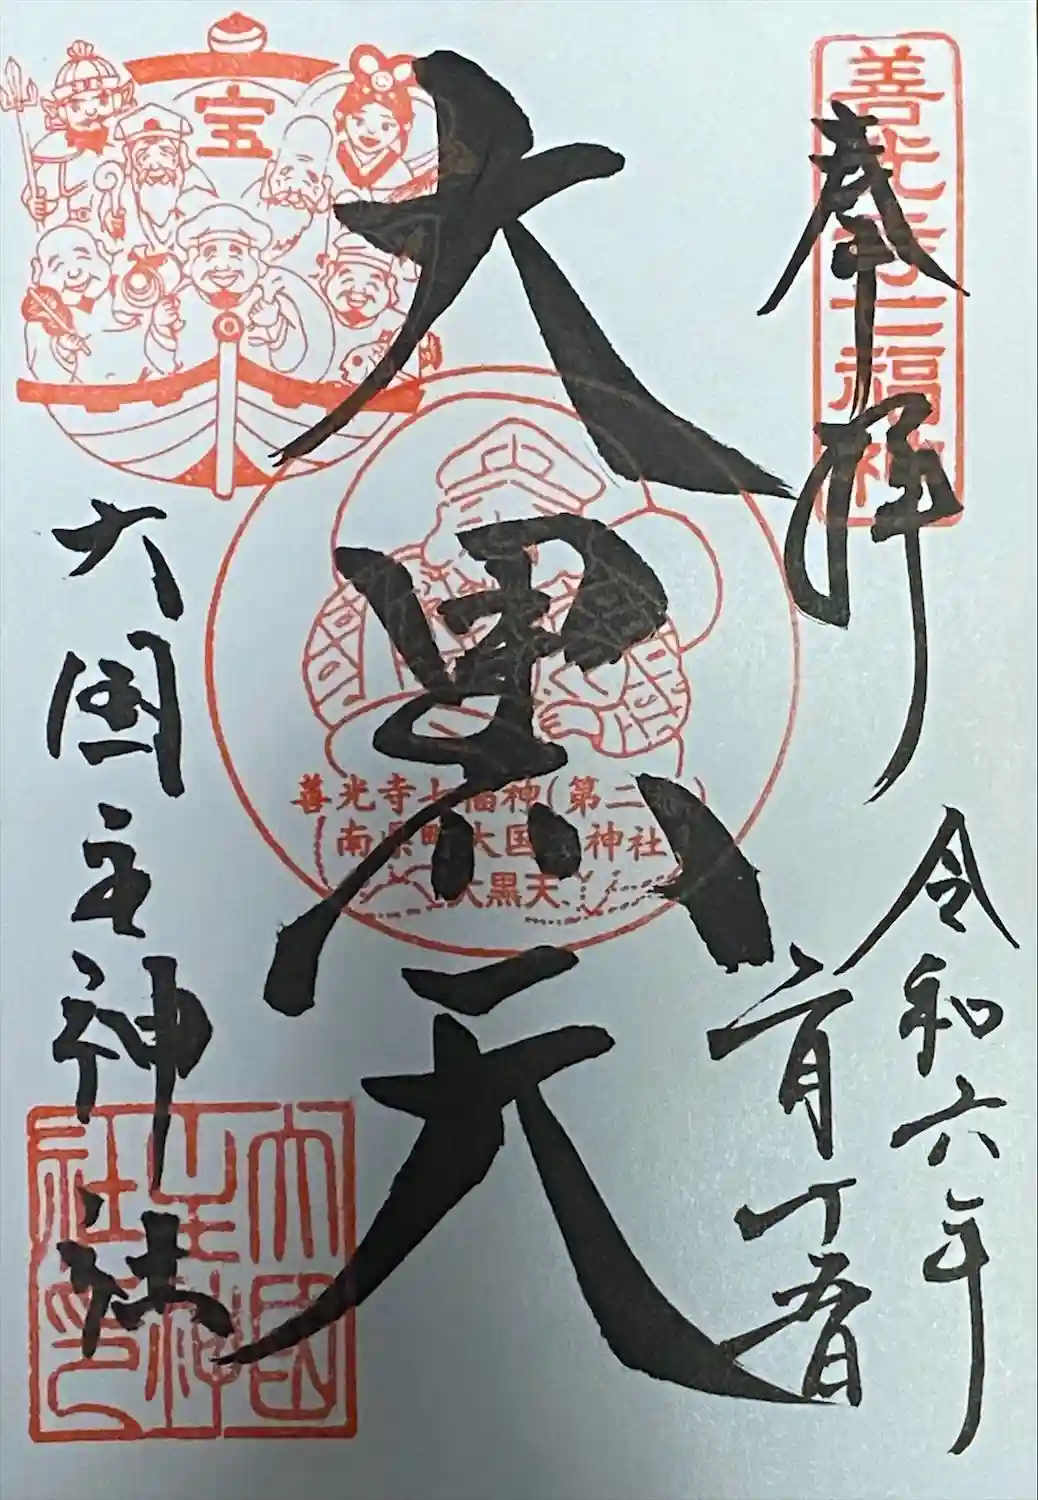 善光寺七福神
奉拝
令和六年
月十五日
大黒天
宝
善光寺七福神(第二番)
南県町大国主神社
大黒天
大国主神社
大国
主神
社印